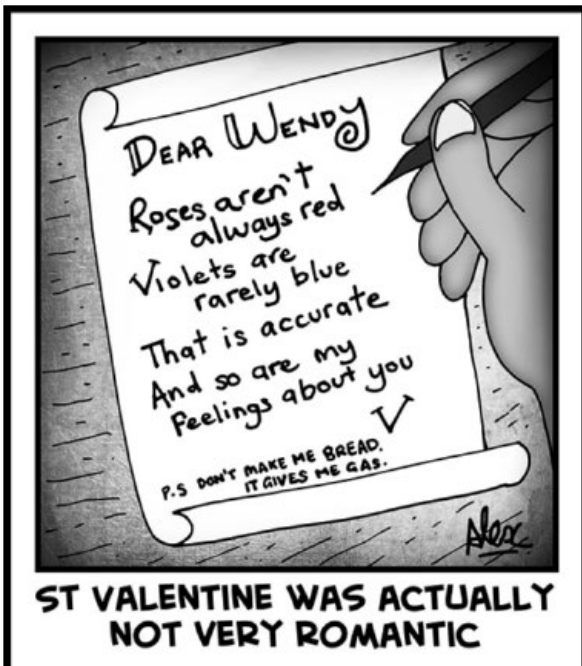 DEAR WENDY
Roses aren't
always red
Violets are
rarely blue
That is accurate
And so are my
Feelings about you
V
P.S DON'T MAKE ME BREAD.
IT GIVES ME GAS.
Alex
ST VALENTINE WAS ACTUALLY
NOT VERY ROMANTIC